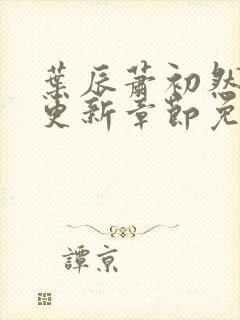 葉辰蕭初然
更新章節免
譚京